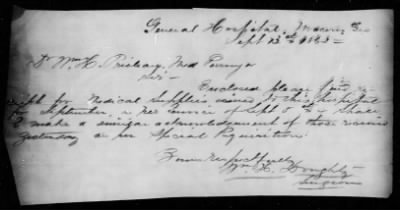 General Hospital, Macon, Geo
Sept 13th 1863
Dr Wm H. Prioleau, Med Purveyor
Sir
Enclosed please find re-
ceipt for Medical Supplies issued to this hospital
September, & per invoice of Sept 5th I shall
make a similar acknowledgement of those received
yesterday on Special Requisition
Yours respectfully
Wm H. Doughty
Surgeon